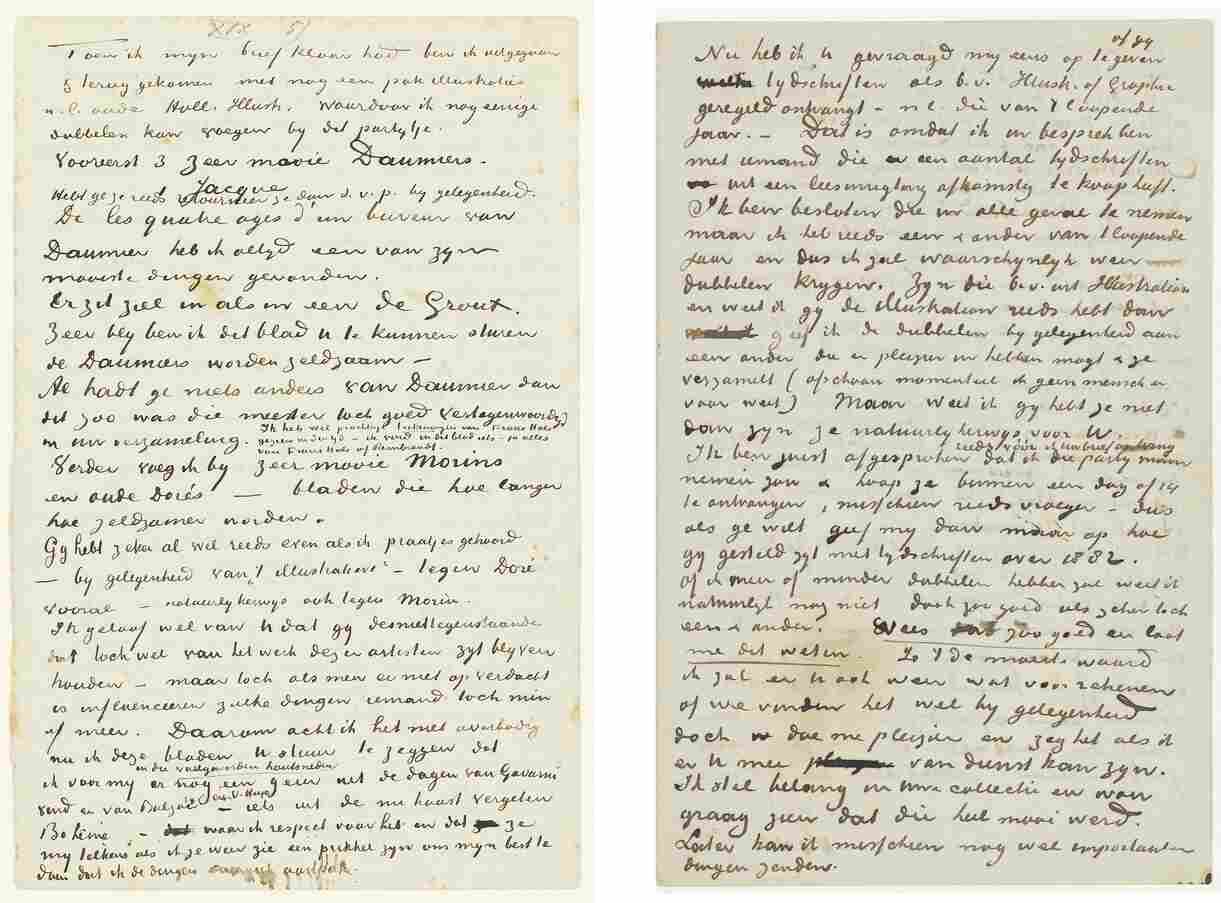 XIX 5)
Toen ik mijn brief klaar had ben ik uitgegaan
& terug gekomen met nog een pak illustraties
n.l. oude Holl. Illust. waardoor ik nog eenige
dubbelen kan voegen bij dit partijtje.
Vooreerst 3 zeer mooie Daumiers.
Jacque
Hebt ge ze reeds retourneer ze dan s.v.p. bij gelegenheid.
De les quatre ages d'un buveur van
Daumier heb ik altijd een van zijn
mooiste dingen gevonden.
Er zit ziel in als in een de Groux.
Zeer blij ben ik dit blad U te kunnen sturen
de Daumiers worden zeldzaam —
Al hadt ge niets anders van Daumier dan
dit zoo was die meester toch goed vertegenwoordigd
in uw verzameling. Ik heb wel prachtige teekeningen van Frans Hals
gezien in den tijd – ik vind in dit blad iets – zo alles
van Frans Hals of Rembrandt.
Verder voeg ik bij zeer mooie Morins
en oude Dorés — bladen die hoe langer
hoe zeldzamer worden.
Gij hebt zeker al wel reeds even als ik praatjes gehoord
— bij gelegenheid van 't illustratievé – tegen Doré
vooral – natuurlijkerwijs ook tegen Morin.
Ik geloof wel van U dat gij desniettegenstaande
dat toch wel van het werk dezer artisten zijt blijven
houden – maar toch als men er niet op verdacht
is influenceeren zulke dingen iemand toch min
of meer. Daarom acht ik het niet overbodig
nu ik deze bladen U stuur te zeggen dat
in die vuelgeworden houtsneden
ik voor mij er nog een geur uit de dagen van Gavarni
vind en van Balzac en V. Hugo – iets uit de nu haast vergeten
Bohême – waar ik respect voor heb en dat ze
mij telkens als ik ze weer zie een prikkel zijn om mijn best te
doen dat ik de dingen aanpak.
of 99
Nu heb ik U gevraagd mij eens op te geven
welke tijdschriften als b.v. Illust. of Graphic
geregeld ontvangt – n.l. die van 't loopende
jaar. – Dat is omdat ik in bespreking ben
met iemand die een aantal tijdschriften
uit een leesinrigting afkomstig te koop heeft.
Ik ben besloten die in alle geval te nemen
maar ik heb reeds een & ander van 't loopende
jaar en dus ik zal waarschijnlijk weer
dubbelen krijgen. Zijn die b.v. uit Illustration
en weet ik gij de illustration reeds hebt dan
geef ik de dubbelen bij gelegenheid aan
een ander die er pleizier in hebben mogt & ze
verzamelt (ofschoon momenteel ik geen mensch er
voor weet) Maar weet ik gij hebt ze niet
dan zijn ze natuurlijkerwijs voor U.
reeds vóór ik uw brief ontvang
Ik ben juist afgesproken dat ik die partij maar
nemen zou & hoop ze binnen een dag of 14
te ontvangen, misschien reeds vroeger – dus
als ge wilt geef mij dan indien op hoe
gij gesteld zijt met tijdschriften over 1882.
Of ik meer of minder dubbelen hebben zal weet ik
natuurlijk nog niet doch zoo goed als zeker toch
een & ander. Wees zoo goed en laat
me dit weten. Is 't de moeite waard
ik zal er U ook weer wat voor rekenen
of we vinden het wel bij gelegenheid
doch doe me pleizier en zeg het als ik
er U mee van dienst kan zijn.
Ik stel belang in Uwe collectie en wou
graag zien dat die heel mooi werd.
Later kan ik misschien nog wel importanter
dingen zenden.